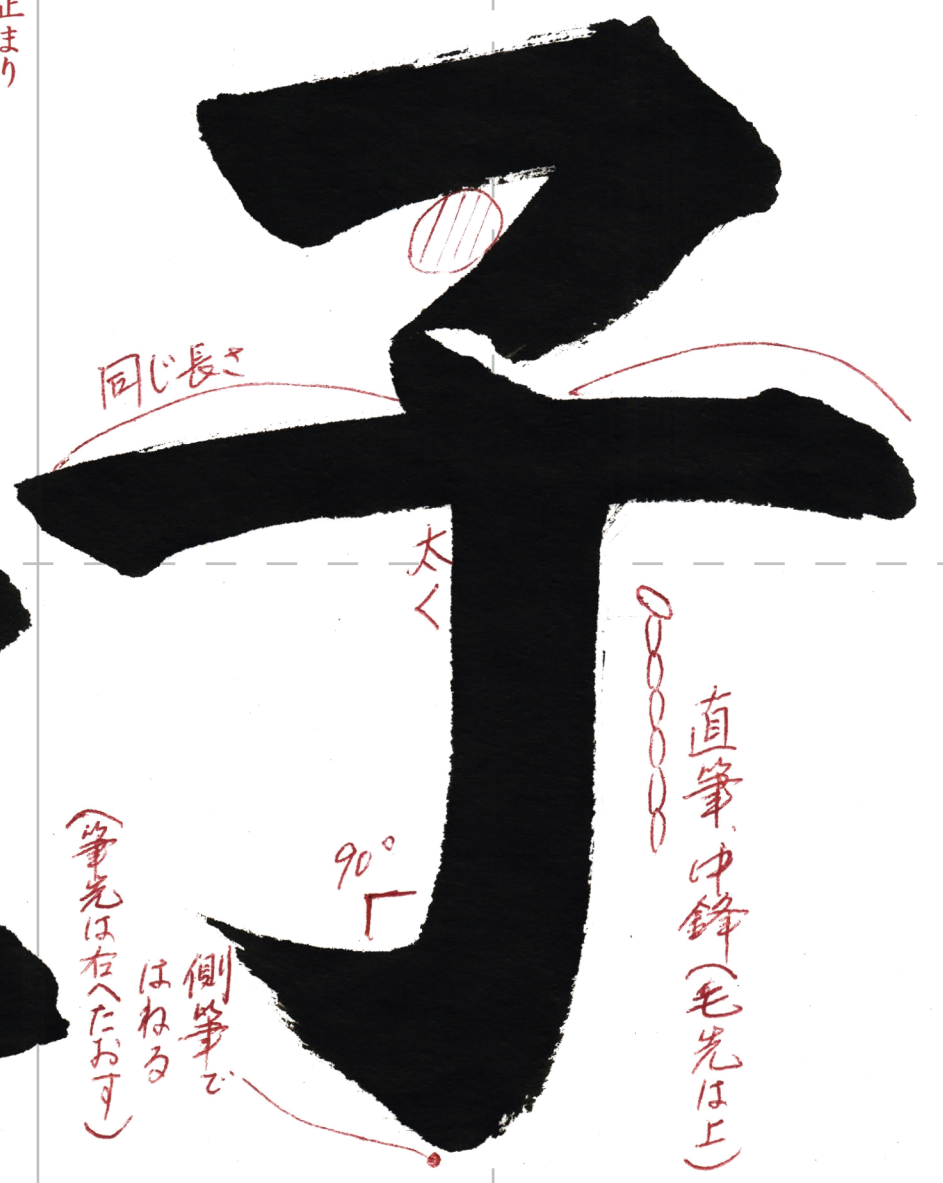 止まり
子
同じ長さ
太く
直筆、中鋒(毛先は上)
90°
側筆で
はねる
(筆先は右へたおす)